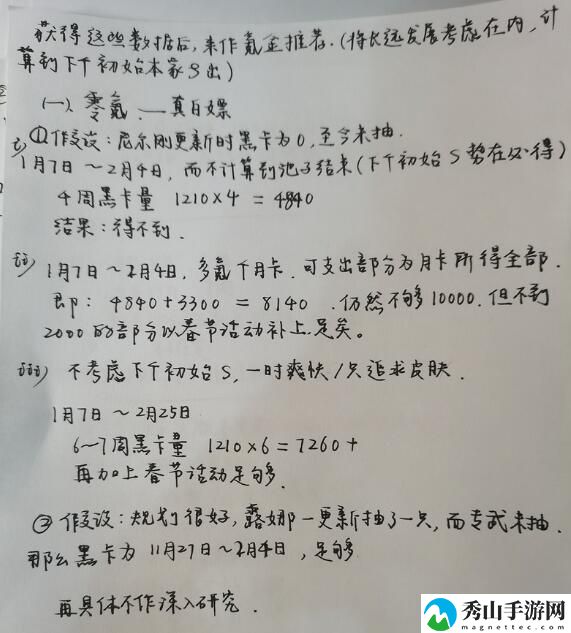 获得这些数据后，来作氪金推荐.(将长远发展考虑在内，计
算到下个初始本家S出)
(一)、零氪 — 真白嫖
i) ①假设：尼尔刚更新时黑卡为0,至今未抽.
1月7日～2月4日，而不计算到池子结束(下个初始S势在必得)
4周黑卡量 1210×4 = 4840
结果：得不到.
ii) 1月7日～2月4日，多氪个月卡.可支出部分为月卡所得全部.
即：4840+3300 = 8140 .仍然不够10000.但不到
2000的部分以春节活动补上足矣。
iii) 不考虑下个初始S,一时爽快/只追求皮肤.
1月7日～2月25日
6～7周黑卡量 1210×6=7260+
再加上春节活动足够.
② 假设：规划很好，露娜一更新抽了一只，而专武未抽.
那么黑卡为11月27日～2月4日，足够
再具体不作深入研究.
秀山手游网
magnettec.com